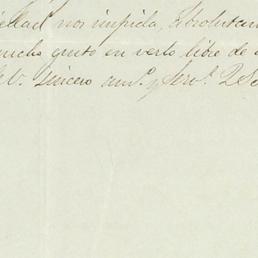 nos impida, absolutam
mucho gusto en verlo libre de
V. sincero am.º y serv.r